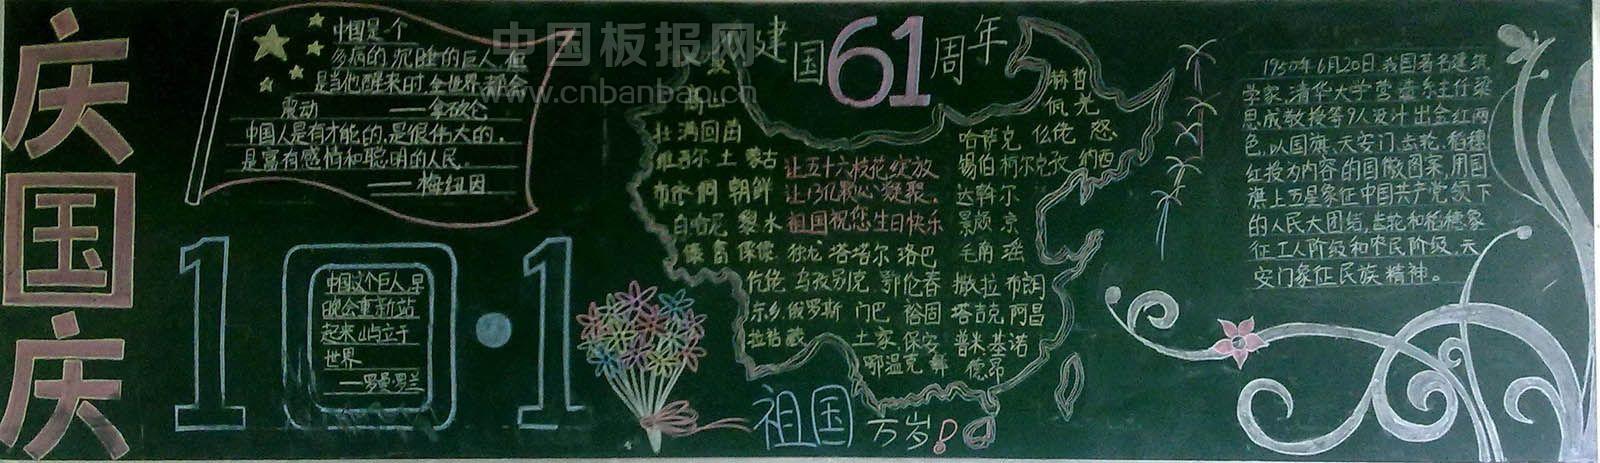 庆
国
庆
中国是一个
多病的,沉睡的巨人,但
是当他醒来时,全世界都会
震动 ——拿破仑
中国人是有才能的,是很伟大的,
是富有感情和聪明的人民。
——梅纽因
1 0 · 1
中国这个巨人,早
晚会重新站
起来屿立于
世界
——罗曼·罗兰
中国板报网
www.cnbanbao.cn
建国61周年
满 回 苗
维吾尔 土 蒙古
布依 侗 朝鲜
白 哈尼 黎 水
傣 畲 保傣 独龙 塔塔尔 珞巴
仡佬 乌孜别克 鄂伦春
东乡 俄罗斯 门巴 裕固
拉祜 藏 土家 保安
鄂温克 彝
让五十六枝花绽放
让13亿颗心凝聚,
祖国祝您生日快乐
赫哲
佤 羌
哈萨克 仫佬 怒
锡伯 柯尔克孜 纳西
达斡尔
景颇 京
毛南 瑶
撒拉 布朗
塔吉克 阿昌
普米 基诺
德昂
祖国万岁!
1950年6月20日,我国著名建筑
学家,清华大学营造系主任梁
思成教授等9人设计出金红两
色,以国旗、天安门、齿轮、稻穗
红授为内容的国徽图案,用国
旗上五星象征中国共产党领下
的人民大团结,齿轮和稻穗象
征工人阶级和农民阶级,天
安门象征民族精神。